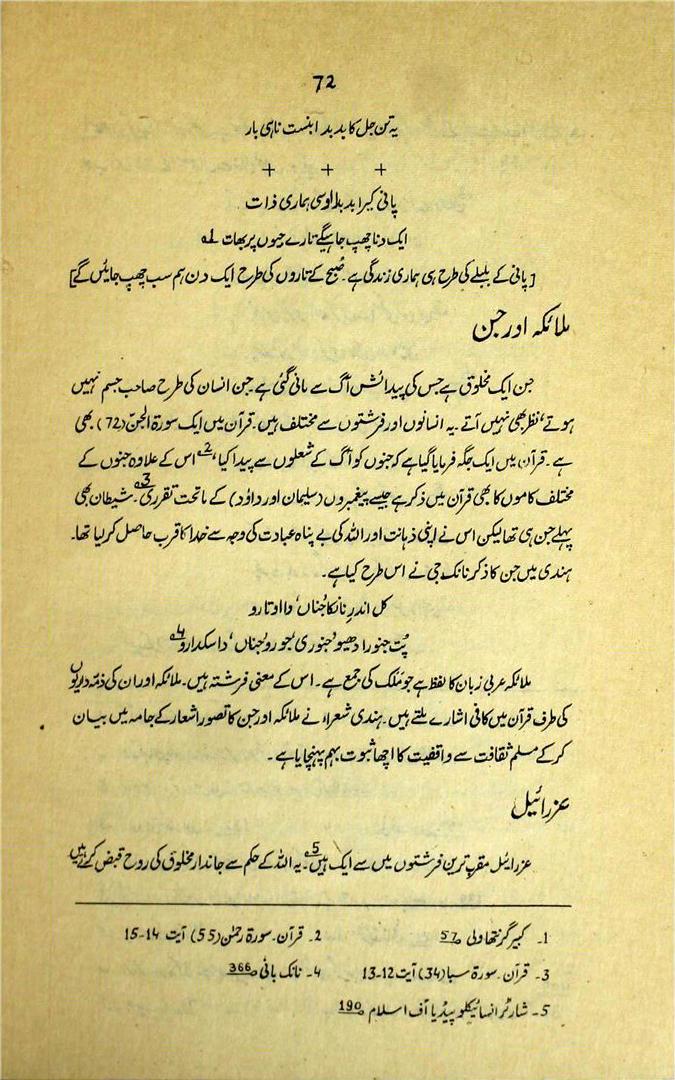 72
یہ تن جل کا بدبدا بنست ناہی بار
+ + +
پانی کیرا بدبدا اوسی ہماری ذات
ایک دنا چھپ جاہیگے تارے جیوں پربھات 1؎
[پانی کے بلبلے کی طرح ہی ہماری زندگی ہے۔ صُبح کے تاروں کی طرح ایک دن ہم سب چھپ جائیں گے]
ملائکہ اور جن
جن ایک مخلوق ہے جس کی پیدائش آگ سے مانی گئی ہے جن انسان کی طرح صاحب جسم نہیں
ہوتے، نظر بھی نہیں آتے۔ یہ انسانوں اور فرشتوں سے مختلف ہیں۔ قرآن میں ایک سورۃ الجنّ (72) بھی
ہے۔ قرآن میں ایک جگہ فرمایا گیا ہے کہ جنوں کو آگ کے شعلوں سے پیدا کیا، 2؎ اس کے علاوہ جنوں کے
مختلف کاموں کا بھی قرآن میں ذکر ہے جیسے پیغمبروں (سلیمان اور داوٗد) کے ماتحت تقرری 3؎۔ شیطان بھی
پہلے جن ہی تھا لیکن اس نے اپنی ذہانت اور اللہ کی بے پناہ عبادت کی وجہ سے خدا کا قرب حاصل کر لیا تھا۔
ہندی میں جن کا ذکر نانک جی نے اس طرح کیا ہے۔
کل اندر نانکا جُناں، دا اوتارو
پُت جنورا دھیو، جنوری جورو جُناں، دا سکدارو 4؎
ملائکہ عربی زبان کا لفظ ہے جو مَلک کی جمع ہے۔ اس کے معنی فرشتہ ہیں۔ ملائکہ اور ان کی ذمّہ داریوں
کی طرف قرآن میں کافی اشارے ملتے ہیں۔ ہندی شعراء نے ملائکہ اور جن کا تصور اشعار کے جامہ میں بیان
کر کے مسلم ثقافت سے واقفیت کا اچھا ثبوت بہم پہنچایا ہے۔
عزرائیل
عزرایئل مقرب ترین فرشتوں میں سے ایک ہیں 5؎۔ یہ اللہ کے حکم سے جاندار مخلوق کی روح قبض کرتے ہیں
1۔ کبیر گرنتھاولی 57 2۔ قرآن۔ سورۃ رحمٰن (55) آیت 14-15
3۔ قرآن۔ سورۃ سبا (34) آیت 12-13 4۔ نانک بانی 366
5۔ شارٹر انسائیکلو پیڈیا آف اسلام 190